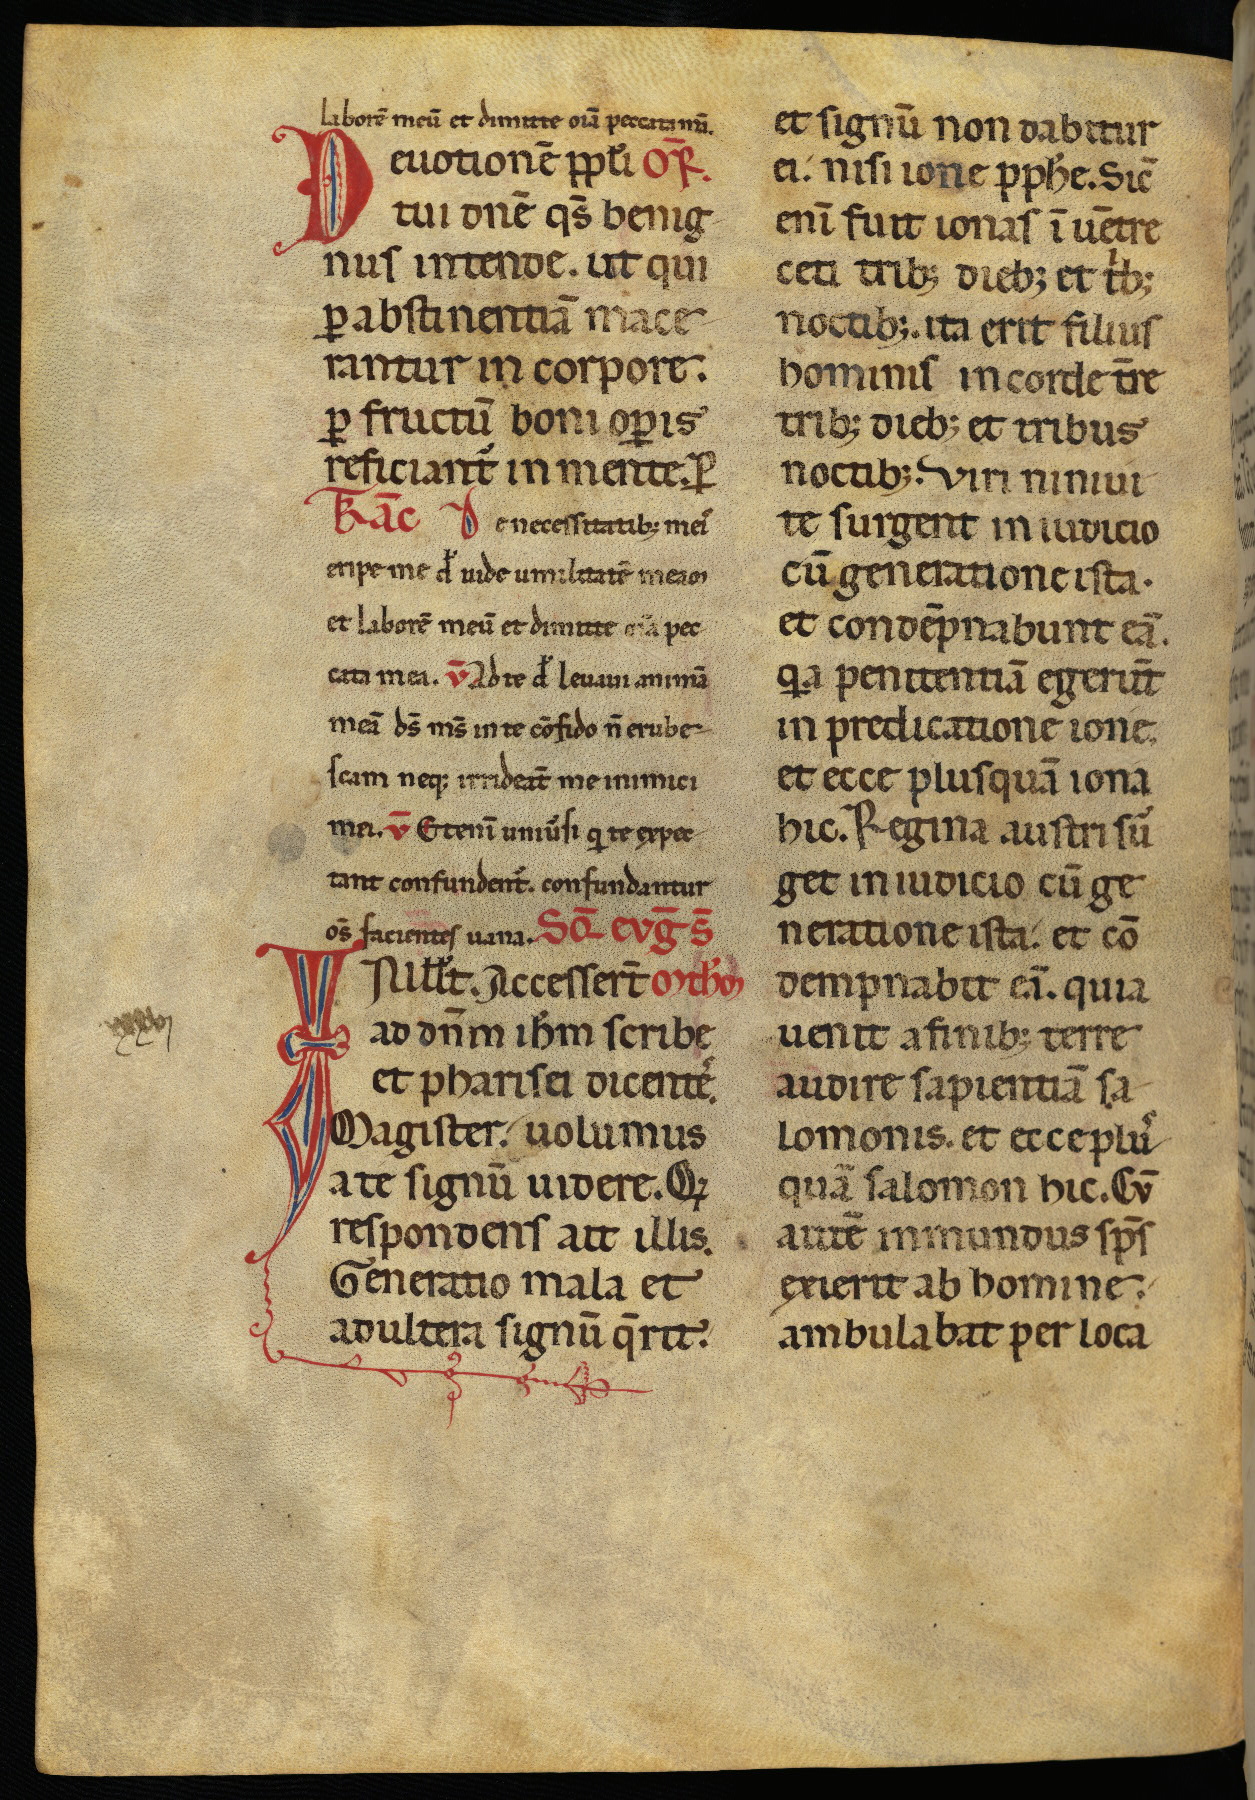 laborē meū et dimitte oīa peccata m̄.
Deuotionē ppl̄i OR̄.
tui dn̄e qs̄ benig
nus intende. ut qui
ꝑ abstinentiā mace
rantur in corpore.
ꝑ fructū boni oꝑis
reficiant᷑ in mente. ꝑ
TRAC̄ De necessitatib; meis
eripe me d̄ uide umilitatē meam
et laborē meū et dimitte oīa pec
cata mea. V̄ Ad te d̄ leuaui animā
meā ds̄ ms̄ in te cōfido n̄ erube
scam neq; irrideāt me inimici
mei. V̄ Etenī uniūsi q̄ te expec
tant confundent᷑. confundantur
om̄s facientes uana. Sc̄d eVḡ S̄
IN ill̄ t̄. Accesser̄t Math̄m
ad dn̄m ih̄m scribe
et pharisei dicentes.
Magister. uolumus
a te signū uidere. Qi
respondens ait illis.
Generatio mala et
adultera signū q̄rit.
et signū non dabitur
ei. nisi ione pphe. Sic̄
enī fuit ionas ī uētre
ceti trib; dieb; et t̄b;
noctib;. ita erit filius
hominis in corde t̄re
trib; dieb; et tribus
noctib;. Viri niniui
te surgent in iudicio
cū generatione ista.
et condēpnabunt eā.
qa penitentiā egerūt
in predicatione ione.
et ecce plusquā iona
hic. Regina austri su᷑
get in iudicio cū ge
neratione ista. et cō
dempnabit eā. quia
uenit a finib; terre
audire sapientiā sa
lomonis. et ecce plus
quā salomon hic. Cū
autē inmundus sp̄s
exierit ab homine.
ambulabat per loca